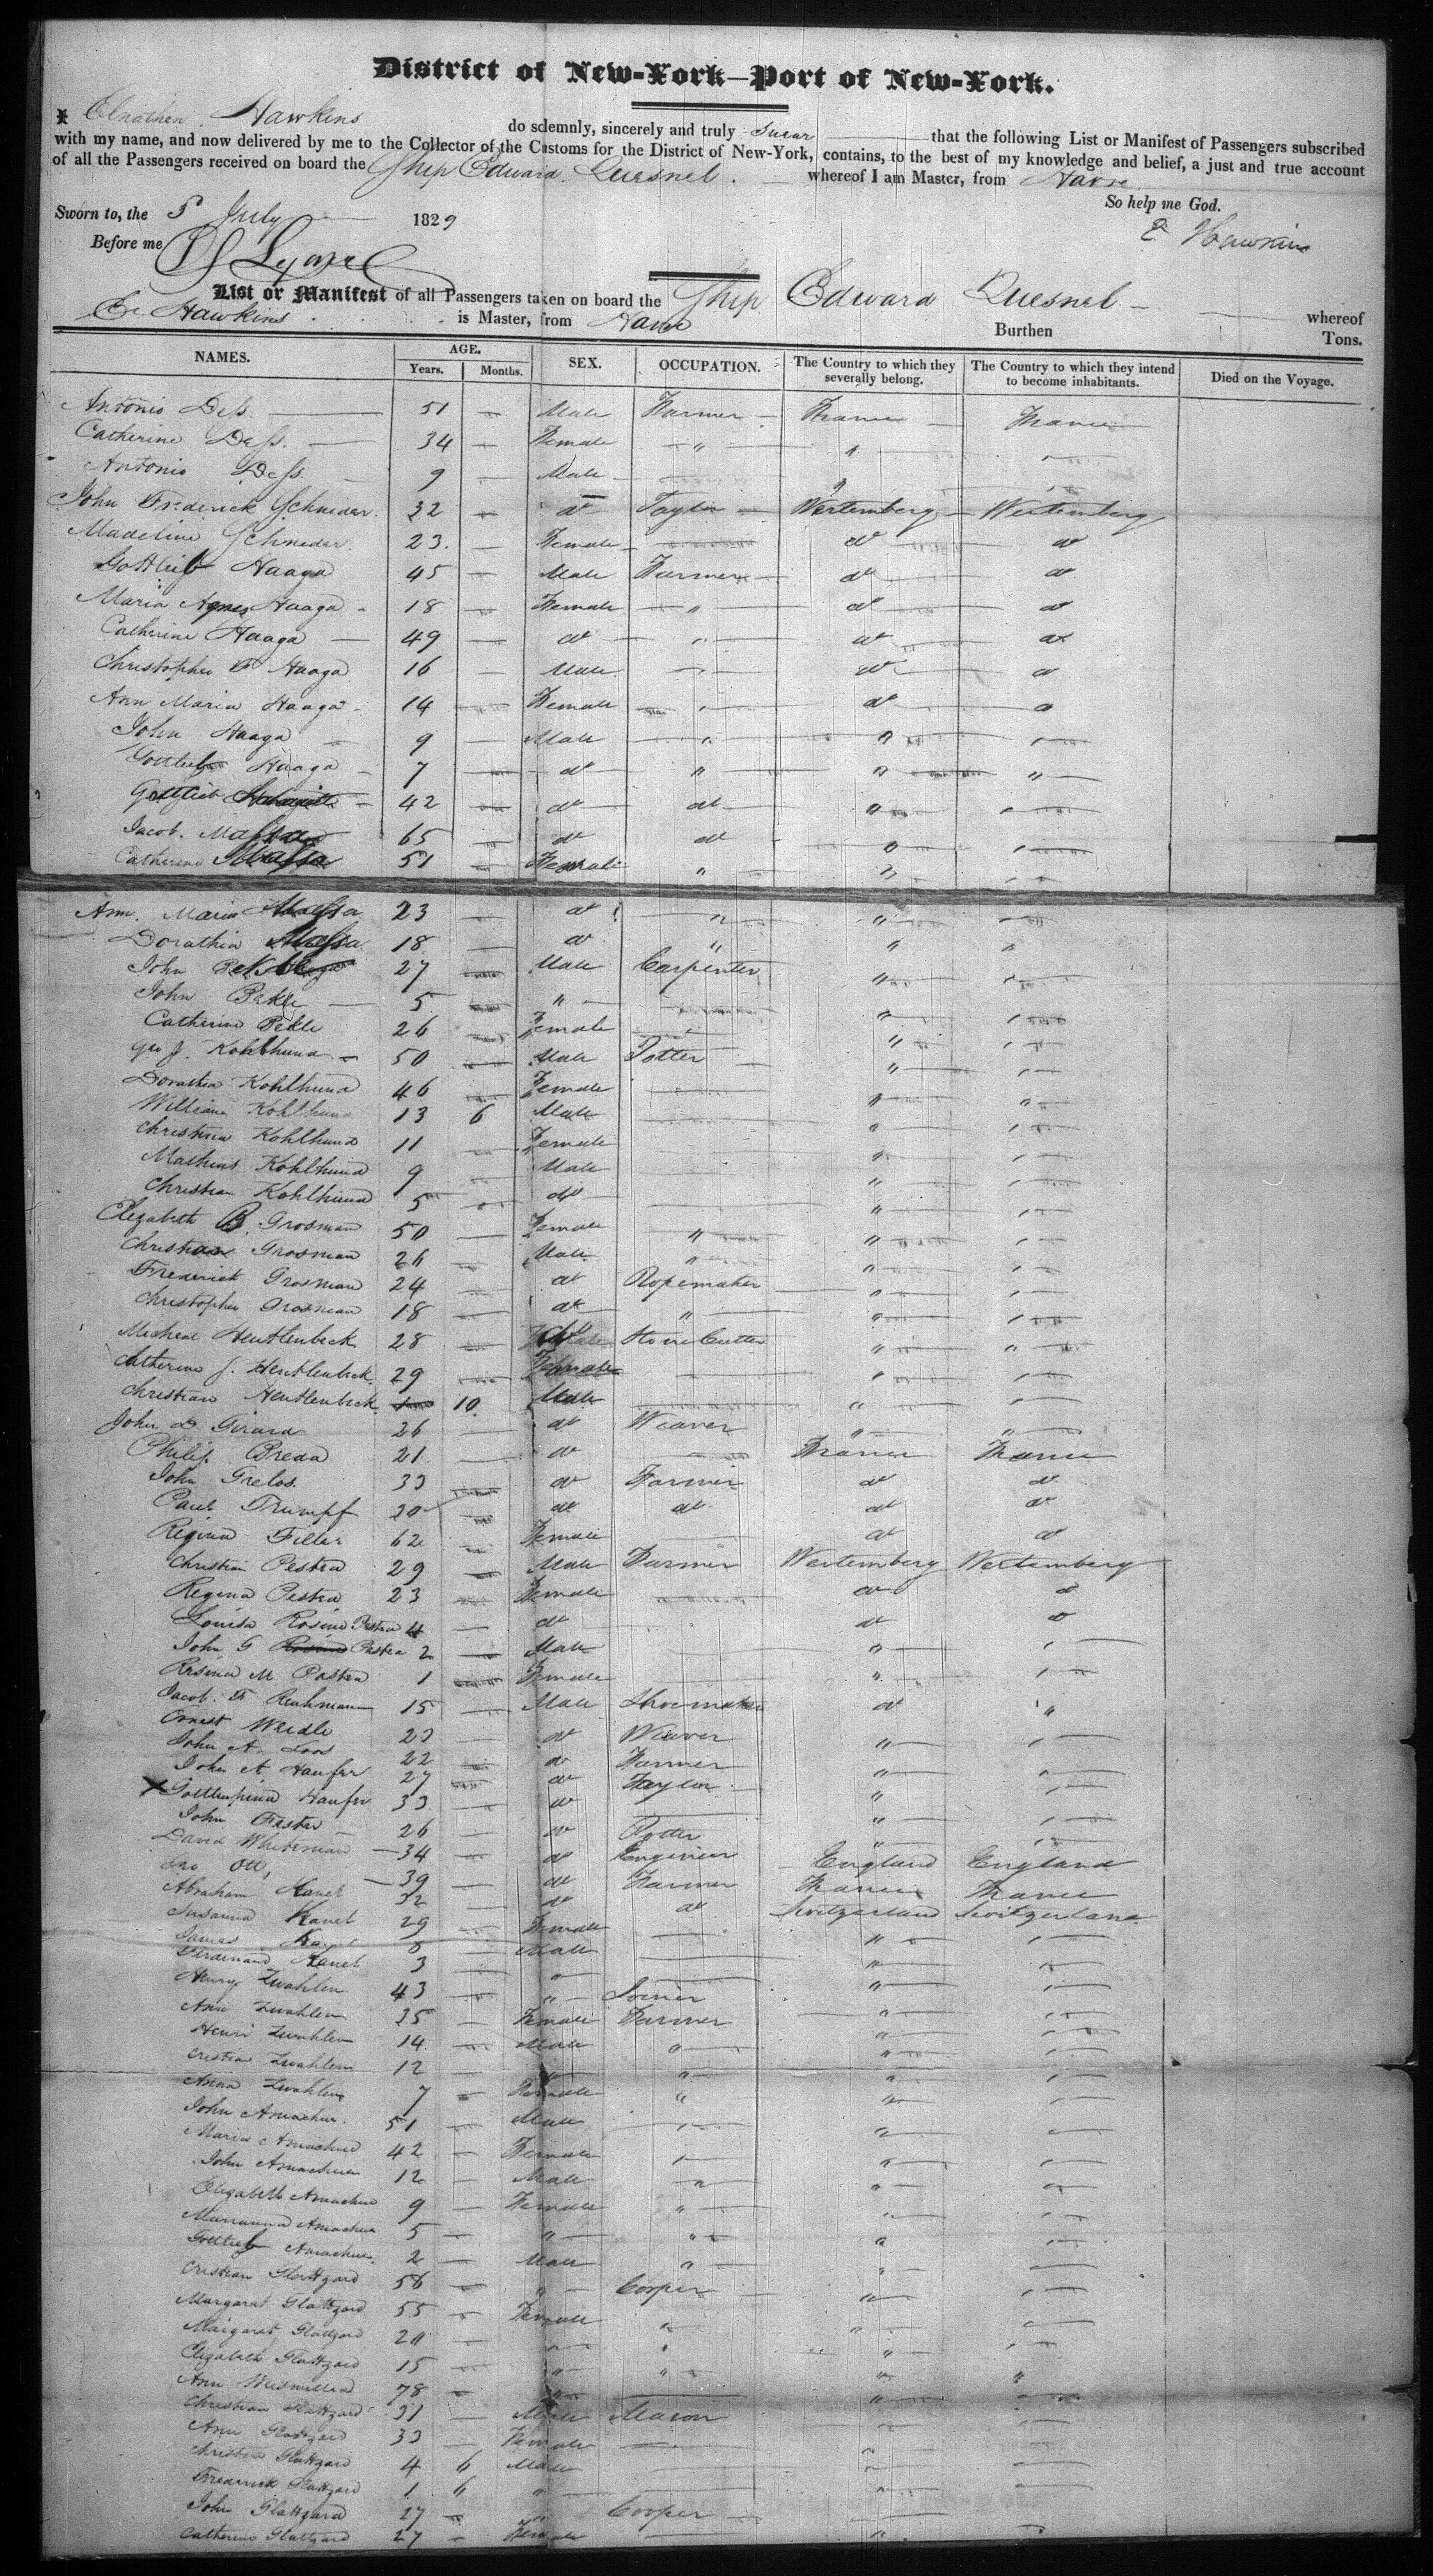 District of New-York—Port of New-York.
I Elnathan Hawkins do solemnly, sincerely and truly swear that the following List or Manifest of Passengers subscribed
with my name, and now delivered by me to the Collector of the Customs for the District of New-York, contains, to the best of my knowledge and belief, a just and true account
of all the Passengers received on board the Ship Edward Quesnel. whereof I am Master, from Havre
So help me God.
Sworn to, the 5 July 1829
E Hawkins
Before me
List or Manifest of all Passengers taken on board the Ship Edward Quesnel whereof
E. Hawkins is Master, from Havre Burthen Tons.
NAMES. AGE. Years. Months. SEX. OCCUPATION. The Country to which they severally belong. The Country to which they intend to become inhabitants. Died on the Voyage.
Antonio Dess. 51 Male Farmer France France
Catherine Dess. 34 Female " "
Antonio Dess. 9 Male "
John Frederick Schneider. 32 do Taylor Wertemberg Wertemberg
Madeline Schneder 23. Female do do
Gottlieb Haaga 45 Male Farmer do do
Maria Agnes Haaga 18 Female " do do
Catherine Haaga 49 do " do do
Christopher F Haaga 16 Male do do
Ann Maria Haaga 14 Female " do do
John Haaga 9 Male " " "
Gottlieb Haaga 7 do " " "
Gottlieb 42 do do " "
Jacob. Massa 65 do do " "
Catherine Massa 51 Female " " "
Ann. Maria Massa 23 do " " "
Dorathia Massa 18 do " " "
John 27 Male Carpenter " "
John Pekle 5 " " "
Catherine Pekle 26 Female " "
Geo J. Kohlhund 50 Male Potter " "
Dorathea Kohlhund 46 Female " "
William Kohlhund 13 6 Male " "
Christina Kohlhund 11 Female " "
Mathias Kohlhund 9 Male " "
Christian Kohlhund 5 do " "
Elizabeth B. Grosman 50 Female " " "
Christian Grosman 26 Male " " "
Frederick Grosman 24 do Ropemaker " "
Christopher Grosman 18 do " " "
Micheal Heutlenbeck 28 do Stone Cutter " "
Catherine J. Heutlenbeck. 29 Female " "
Christian Heutlenbeck. 10. Male " "
John D Girard 26 do Weaver " "
Philip Breda 21 do France France
John Grelos 33 do Farmer do do
Paul Trumpf 30 do do do do
Regina Filler 62 Female do do
Christian Pestra 29 Male Farmer Wertemberg Wertemberg
Regina Pestra 23 Female do do
Louisa Rosina Pestra 4 do do do
John G Pestra 2 Male " "
Rosina M Pastra 1 Female " "
Jacob F 15 Male Shoemaker do "
Ernest Weidle 23 do Weaver " "
John A. Loos 22 do Farmer " "
John A Haufer 27 do Taylor " "
X Haufer 33 do " "
John 26 do Potter " "
David Whiteman 34 do Engineer England England
Jno Ott, 39 do Farmer France France
Abraham Kanel 32 do do Switzerland Switzerland
Susanna Kanel 29 Female " "
James Kanel 8 Male " "
Ferdinand Kanel 3 " " "
Henry Zwahlen 43 " Joiner " "
Ann Zwahlen 35 Female Farmer " "
Henri Zwahlen 14 Male " " "
Cristian Zwahlen 12 " " " "
Anna Zwahlen 7 Female " " "
John Amacher. 51 Male " " "
Maria Amacher 42 Female " " "
John Amacher 12 Male " " "
Elizabeth Amacher 9 Female " " "
Amacher 5 " " " "
Gottlieb Amacher. 2 Male " " "
Cristian Glattgard 56 " Cooper " "
Margarat Glattgard 55 Female " " "
Margarat Glattgard 20 " " " "
Elizabeth Glattgard 15 " " " "
Ann 78 " " "
Christian Glattgard 31 Male Mason " "
Ann Glattgard 33 Female " "
Christian Glattgard 4 6 Male " "
Frederick Glattgard 1 6 " " "
John Glattgard 27 " Cooper
Catherine Glattgard 27 Female " "